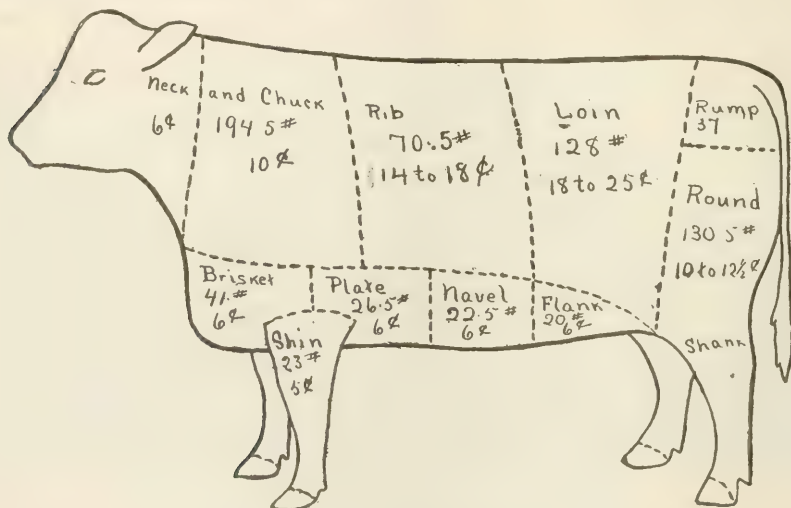 Neck and Chuck
6¢ 194 5#
10 ¢
Rib
70.5#
14 to 18 ¢
Loin
128#
18 to 25¢
Rump
37
Round
130 5#
10 to 12½ ¢
Brisket
41.#
6¢
Plate
26.5#
6¢
Navel
22.5#
6¢
Flank
20#
6¢
Shin
23#
5¢
Shank